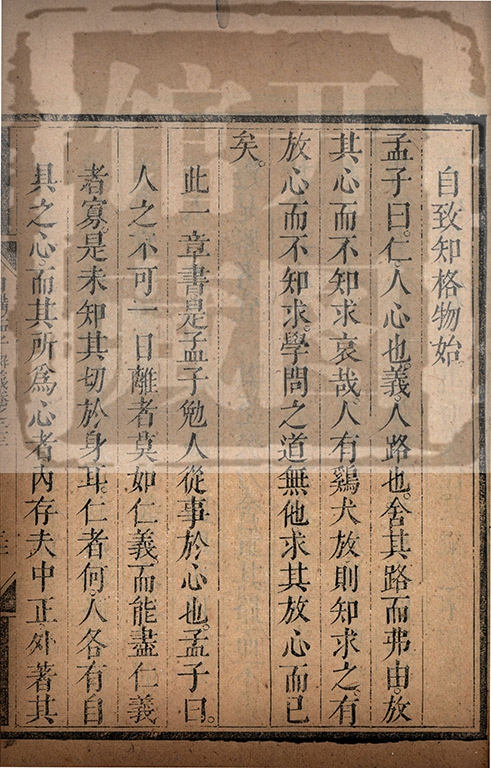 自致知格物始。
孟子曰。仁人心也。義人路也。舍其路而弗由。放
其心而不知求。哀哉。人有鷄犬放則知求之。有
放心而不知求。學問之道無他求其放心而已
矣。
此一章書。是孟子勉人從事於心也。孟子曰。
人之不可一日離者莫如仁義。而能盡仁義
者寡。是未知其切於身耳。仁者何。人各有自
具之心。而其所爲心者內存夫中正外著其